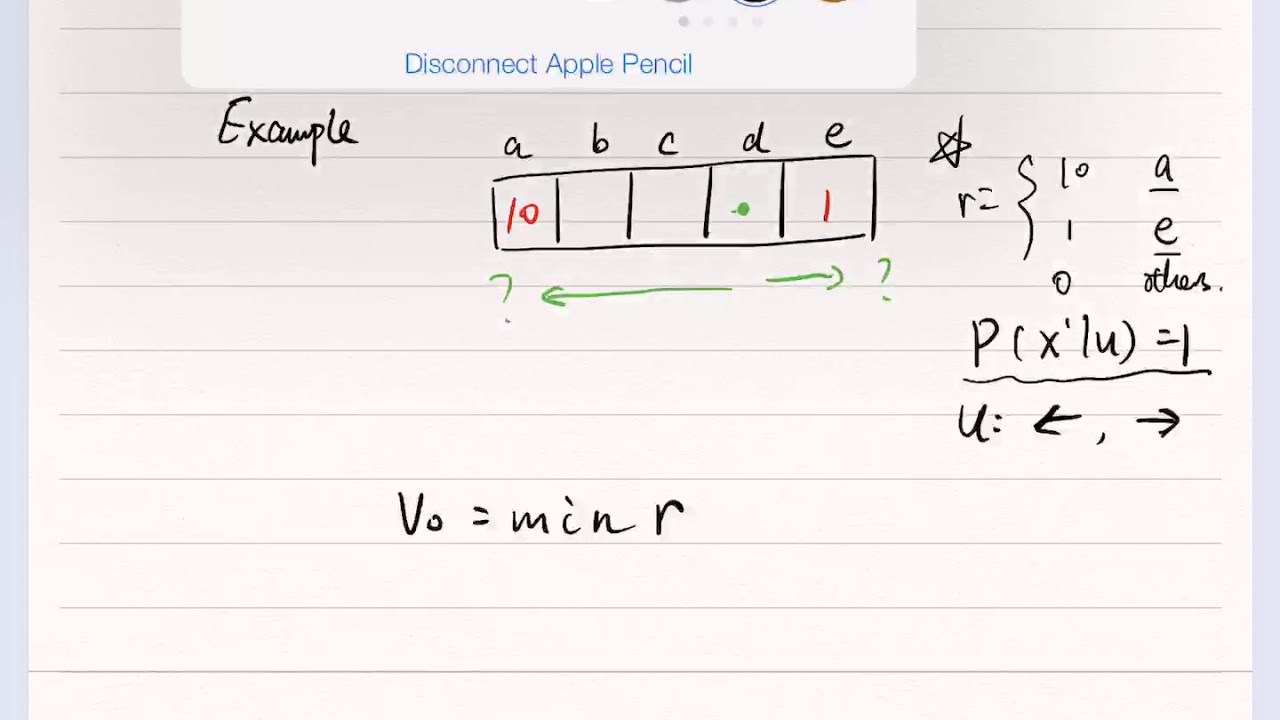 Disconnect Apple Pencil
Example
a b c d e
10 1
? ← → ?
r = { 10 a
1 e
0 others.
P(x'|u) = 1
u: ← , →
V₀ = min r